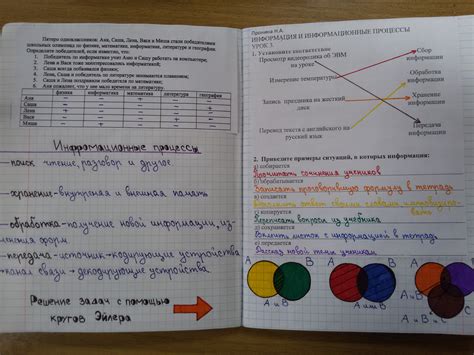 Пятеро одноклассников: Аня, Саша, Лена, Вася и Миша стали победителями
школьных олимпиад по физике, математике, информатике, литературе и географии.
Определите победителей, если известно, что:
1. Победитель по информатике учит Аню и Сашу работать на компьютере;
2. Лена и Вася тоже заинтересовались информатикой;
3. Саша всегда побаивался физики;
4. Лена, Саша и победитель по литературе занимаются плаванием;
5. Саша и Лена поздравили победителя по математике;
6. Аня сожалеет, что у нее мало времени на литературу.
физика информатика математика литература география
Аня
Саша
Лена
Вася
Миша
Информационные процессы
-поиск чтение, разговор и другое
-хранение-внутреняя и внешная память
-обработка-получение новой информации, из-
менения форм
-передача-источник-кодирующее устройства
канал связи-декодирующее устройства
Решение задач с помощью
кругов Эйлера
ИНФОРМАЦИЯ И ИНФОРМАЦИОННЫЕ ПРОЦЕССЫ
УРОК 3.
1. Установите соответствие
Просмотр видеоролика об ЭВМ
на уроке
Сбор
информации
Измерение температуры
Обработка
информации
Запись праздника на жесткий
диск
Хранение
информации
Перевод текста с английского на
русский язык
Передача
информации
2. Приведите примеры ситуаций, в которых информация:
а) собирается
Прочитать сочинения учеников
б) обрабатывается
Записать проговорившую формулу в тетрадь
в) создается
ответ своими словами
г) копируется
Переписать вопросы из учебника
д) сохраняется
Вклеить листок с информацией в тетрадь
е) передается
Рассказ новой темы ученикам
А В А В А В
А и В
А и В
А и В и С